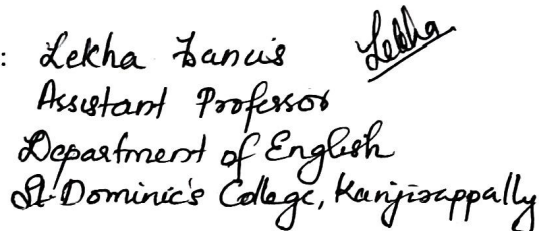 : Lekha Francis Lekha
Assistant Professor
Department of English
St. Dominic's College, Kanjirappally